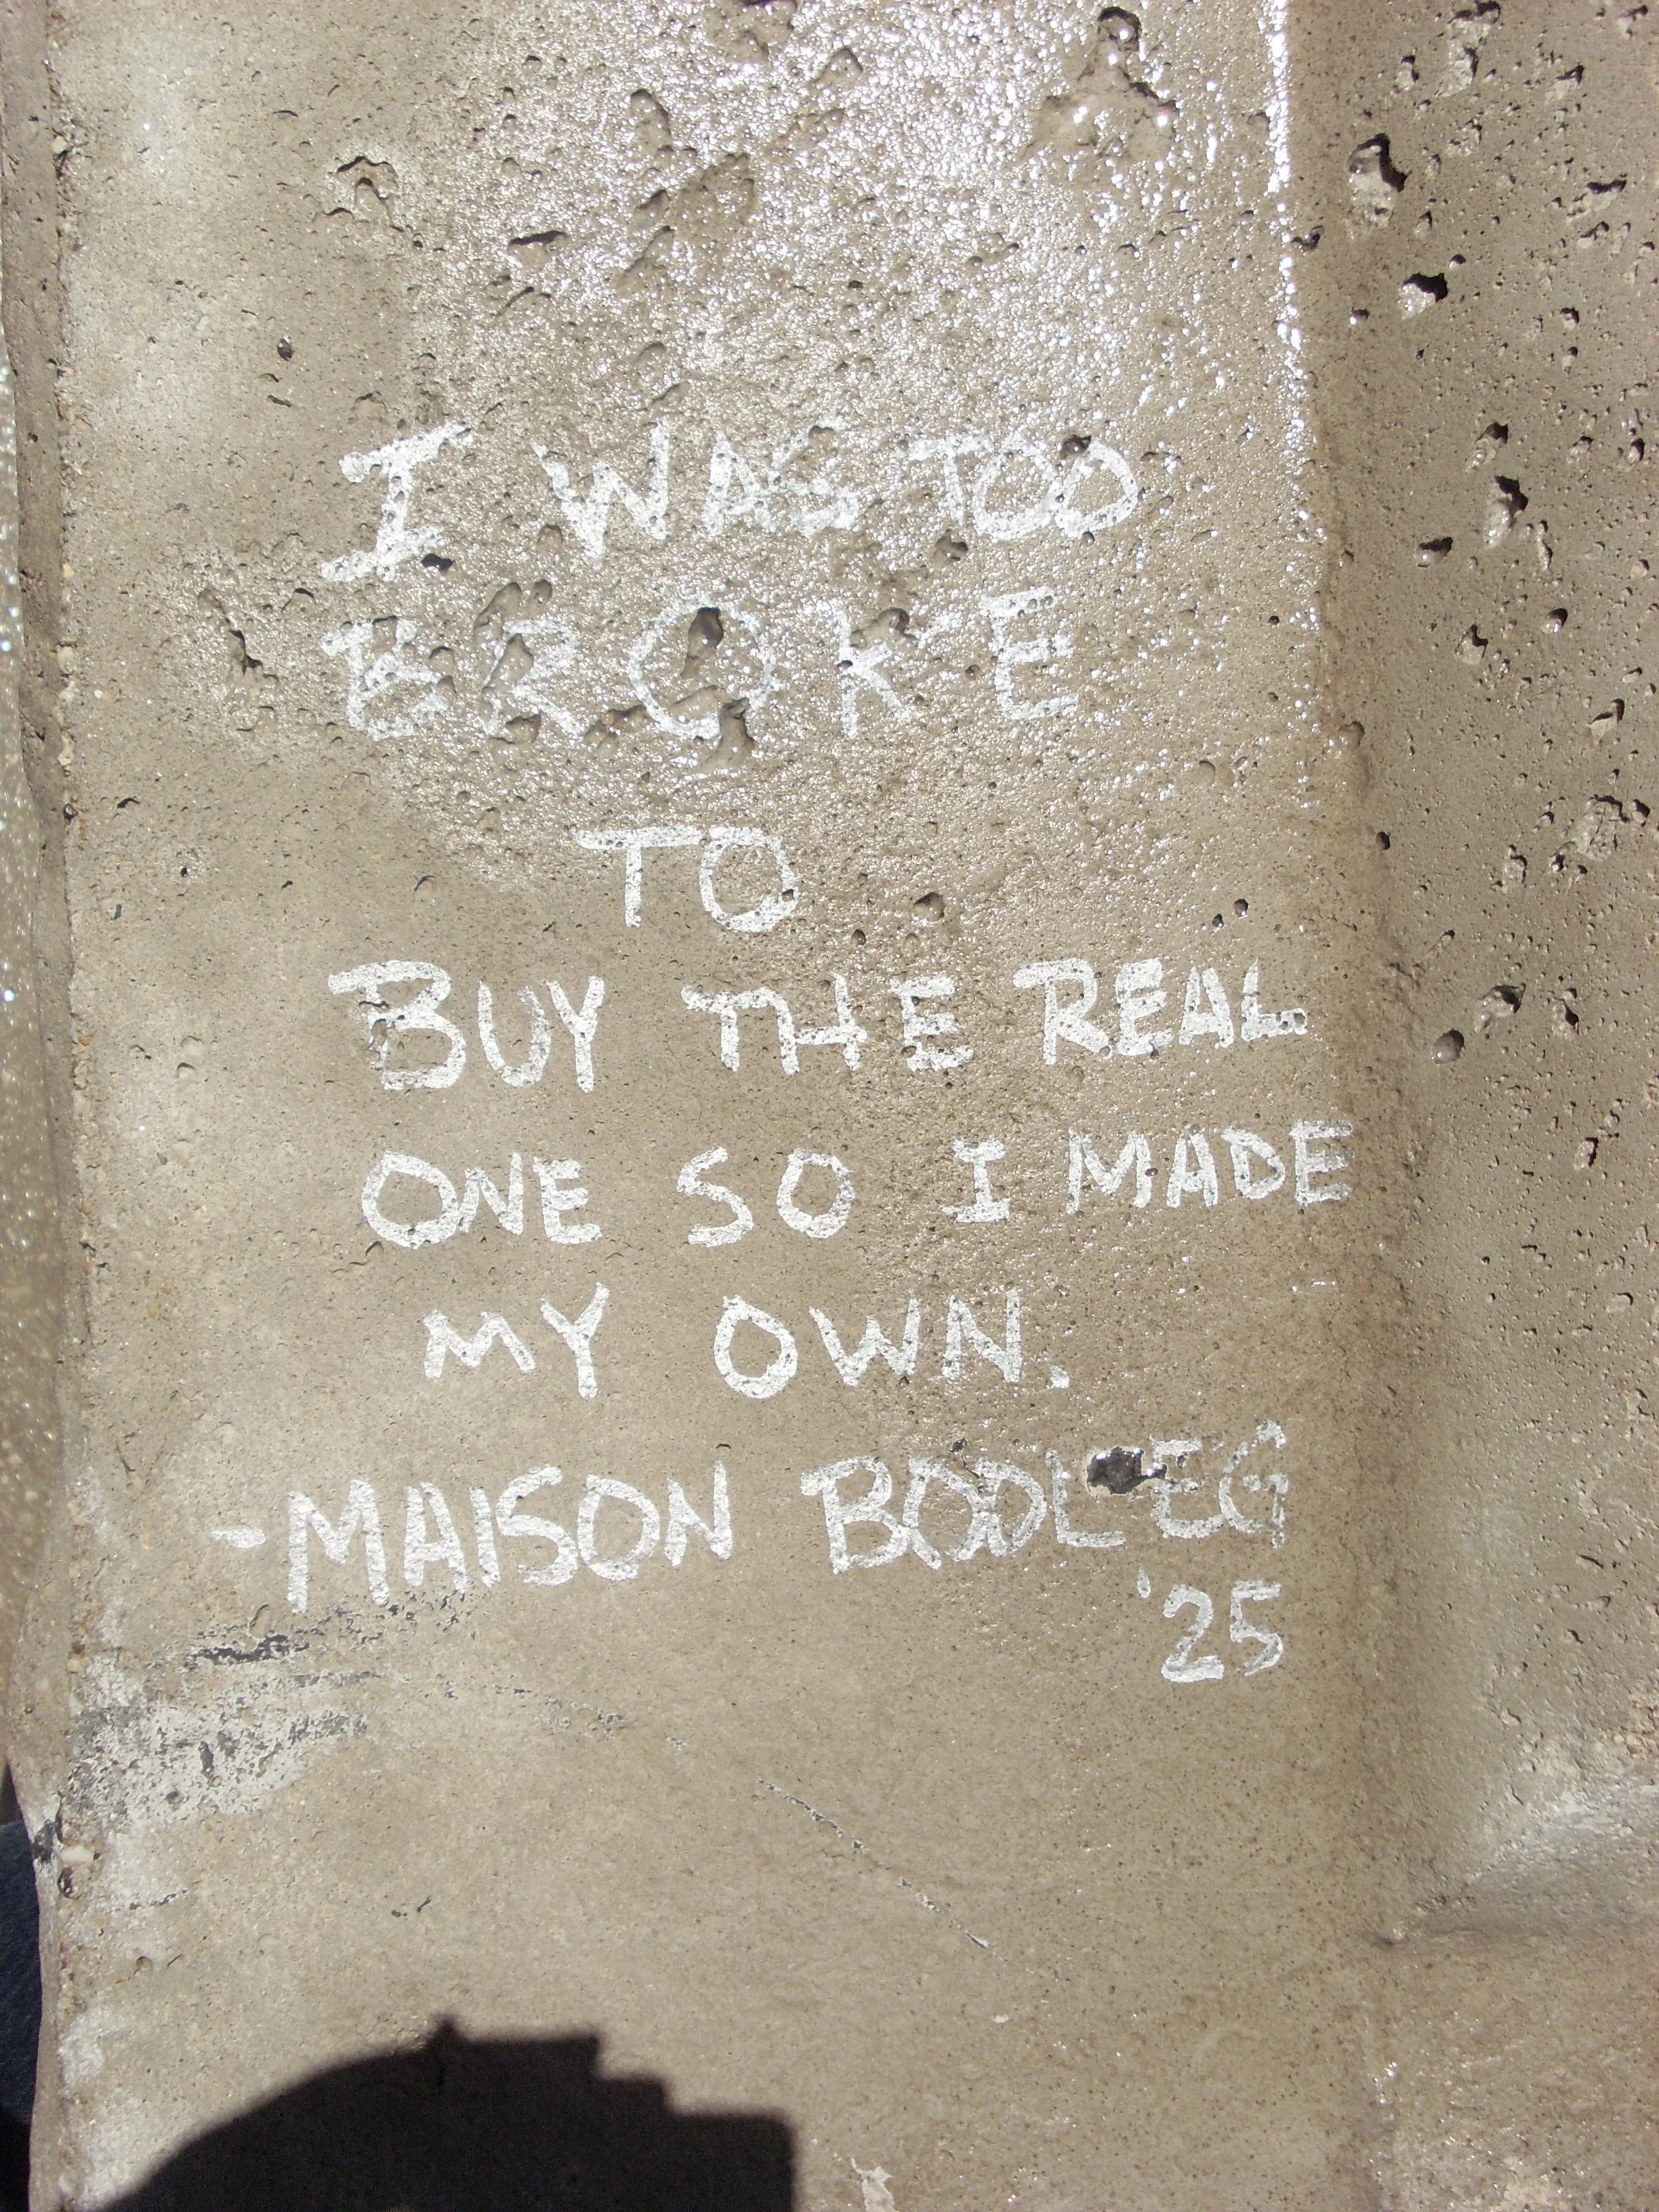 I WAS TOO
BROKE
TO
BUY THE REAL
ONE SO I MADE
MY OWN.
-MAISON BOOLEG
'25